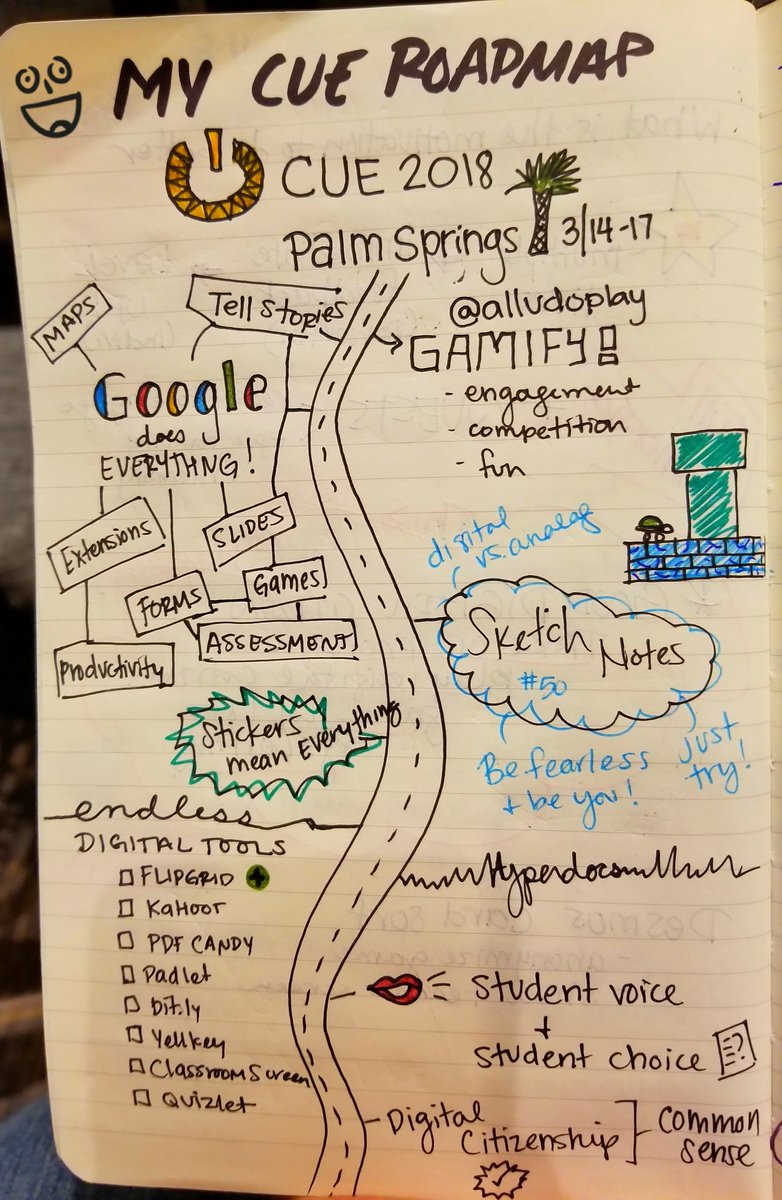 MY CUE ROADMAP
CUE 2018
Palm Springs
3/14-17
MAPS
Tell Stories
Google
does
EVERYTHNG!
Extensions
SLIDES
FORMS
Games
ASSESSMENT
Productivity
@alludoplay
GAMIFY!
- engagement
- competition
- fun
digital
vs. analog
Sketch
Notes
#50
Be fearless
+ be you!
just
try!
Stickers
mean Everything
endless
DIGITAL TOOLS
FLIPGRID
Kahoot
PDF CANDY
Padlet
bit.ly
Yellkey
ClassroomScreen
Quizlet
Hyperdocs
Student voice
+
Student choice
?
Digital
Citizenship
common
sense
What is the motivation to do
Desmos Card sort
- anonymize